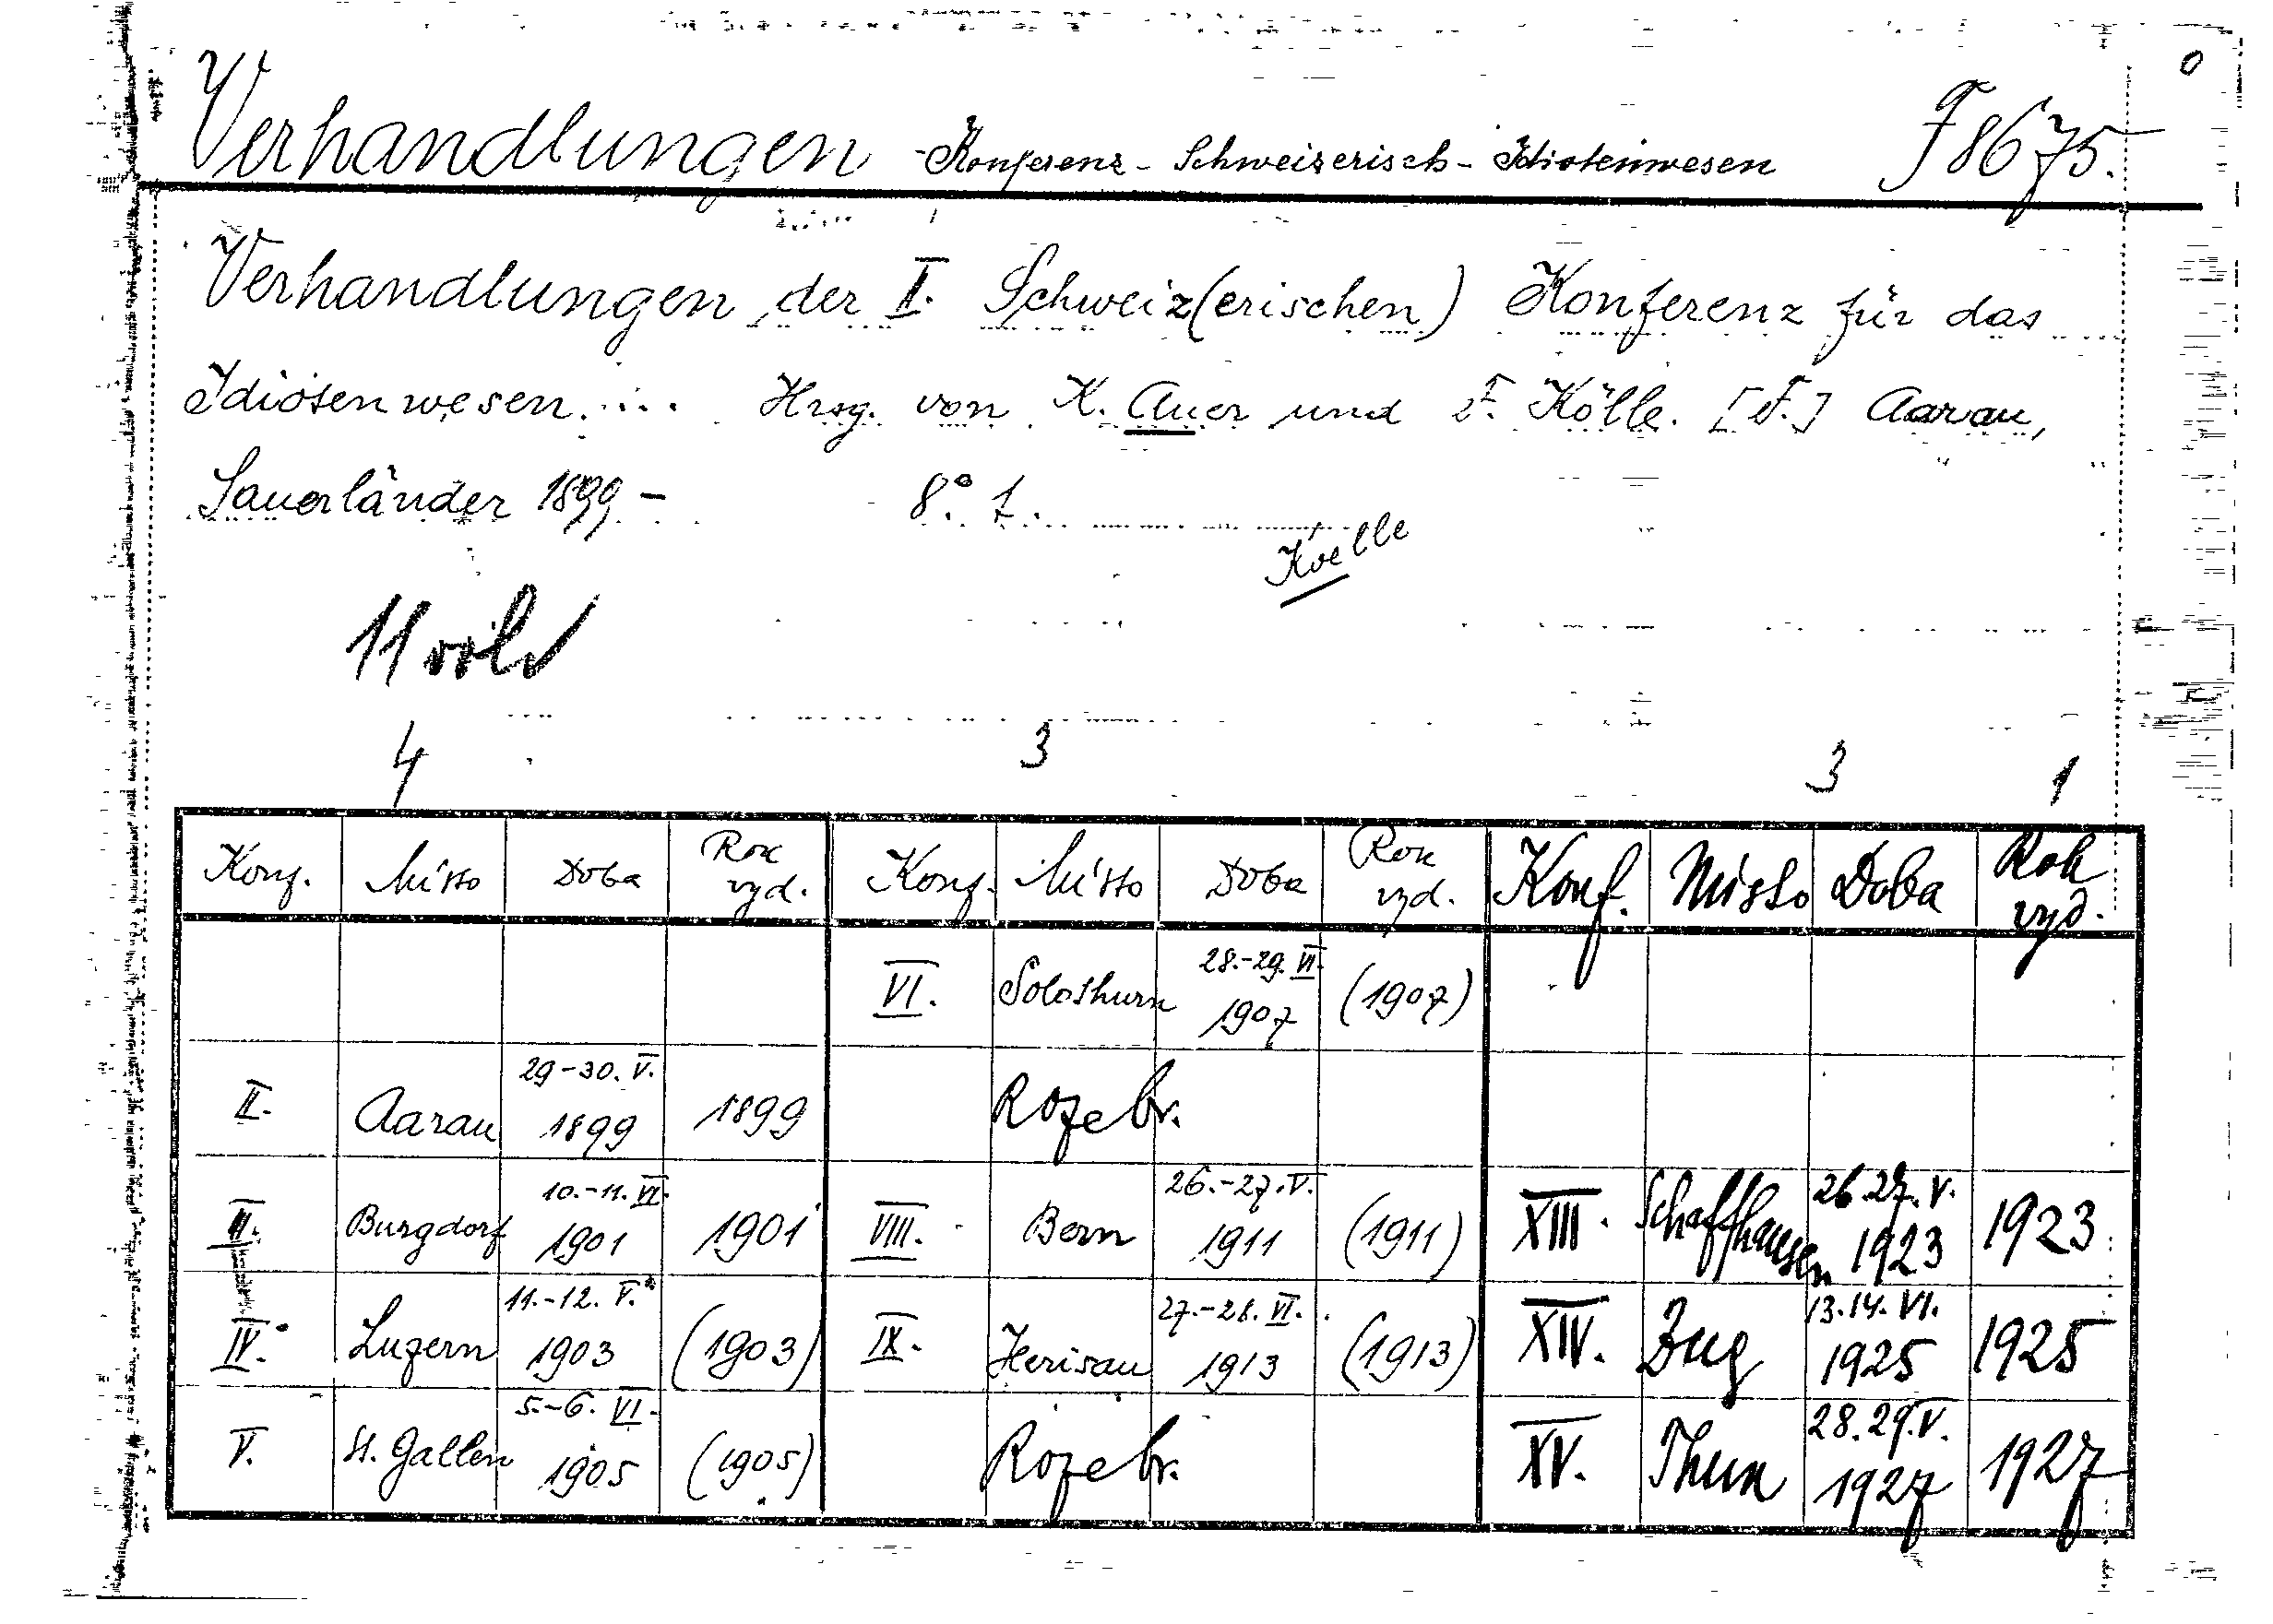 Verhandlungen - Konferenz - Schweizerisch - Idiotenwesen F 8675.
Verhandlungen der II. Schweiz(erischen) Konferenz für das
Idiotenwesen.... Hrsg. von K. Auer und F. Kölle. [F.] Aarau,
Sauerländer 1899 - 8° f.
Koelle
4 3 3 1
Konf. Místo Doba Rok vyd. Konf. Místo Doba Rok vyd. Konf. Místo Doba Rok vyd.
VI. Solothurn 28.-29. VI. 1907 (1907)
II. Aarau 29-30. V. 1899 1899 Rozebr.
III. Burgdorf 10.-11. VI. 1901 1901 VIII. Bern 26.-27. V. 1911 (1911) XIII. Schaffhausen 26.27. V. 1923 1923
IV. Luzern 11.-12. V. 1903 (1903) IX. Herisau 27.-28. VI. 1913 (1913) XIV. Zug 13.14. VI. 1925 1925
V. St. Gallen 5.-6. VI. 1905 (1905) Rozebr. XV. Thun 28.29. V. 1927 1927